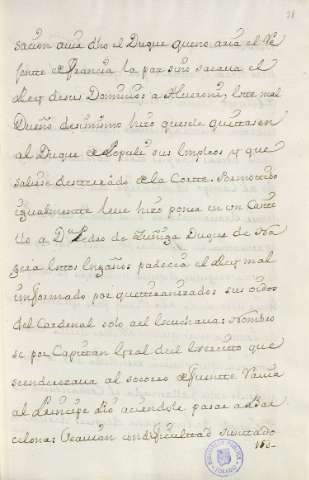 sacion avia dho el Duque queno aria el Re
gente de Francia la paz sino sacava el
Rey desus Dominios a Alveroni, este mal
Dueño desimismo hizo quesele quitasen
al Duque de Populi sus empleos y que
saliese desterrado de la Corte. Removido
igualmente leve hizo poner en un Casti
llo a Dn. Pedro de Zuñiga Duque de Na
gera estos engaños padecia el Rey mal
informado por quetiranizados sus oidos
del Cardenal solo ael escuchava: Nombro
se por Capitan Gral del Exercito que
senderezava al socorro de Fuente Ravia
al Principe Pio aciendole pasar a Bar
celona: Reunion con dificultad juntado